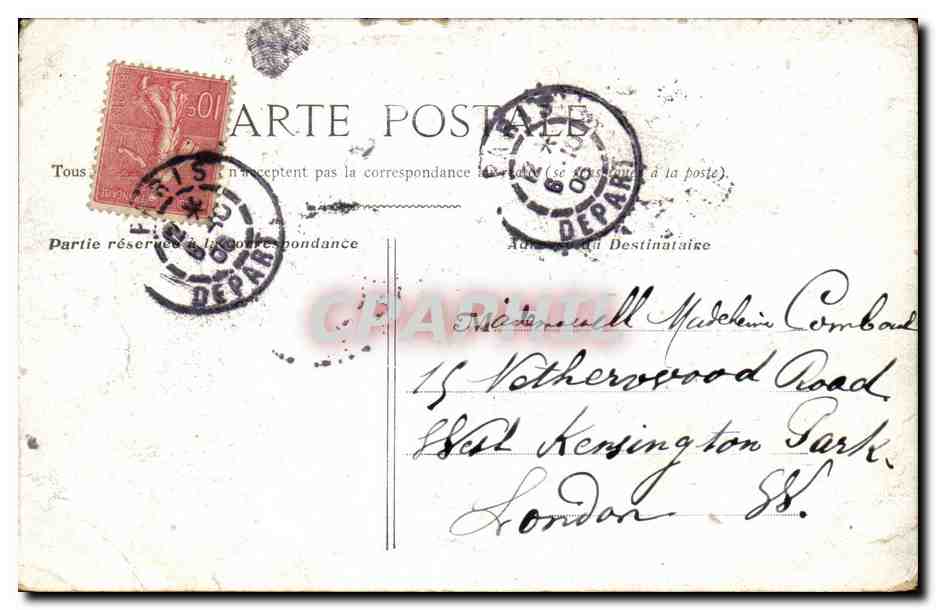 CARTE POSTALE
Tous n'acceptent pas la correspondance (se à la poste).
Partie réservée à la correspondance
Adresse du Destinataire
PARIS
DEPART
PARIS
DEPART
10c
CPAPHIL
Mademoiselle Madeleine
15 Netherwood Road
West Kensington Park.
London W.